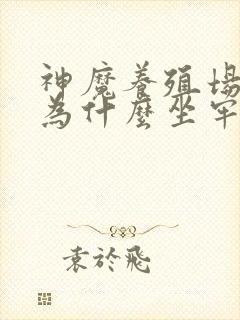 神魔養殖場
為什麼坐牢
袁於飛